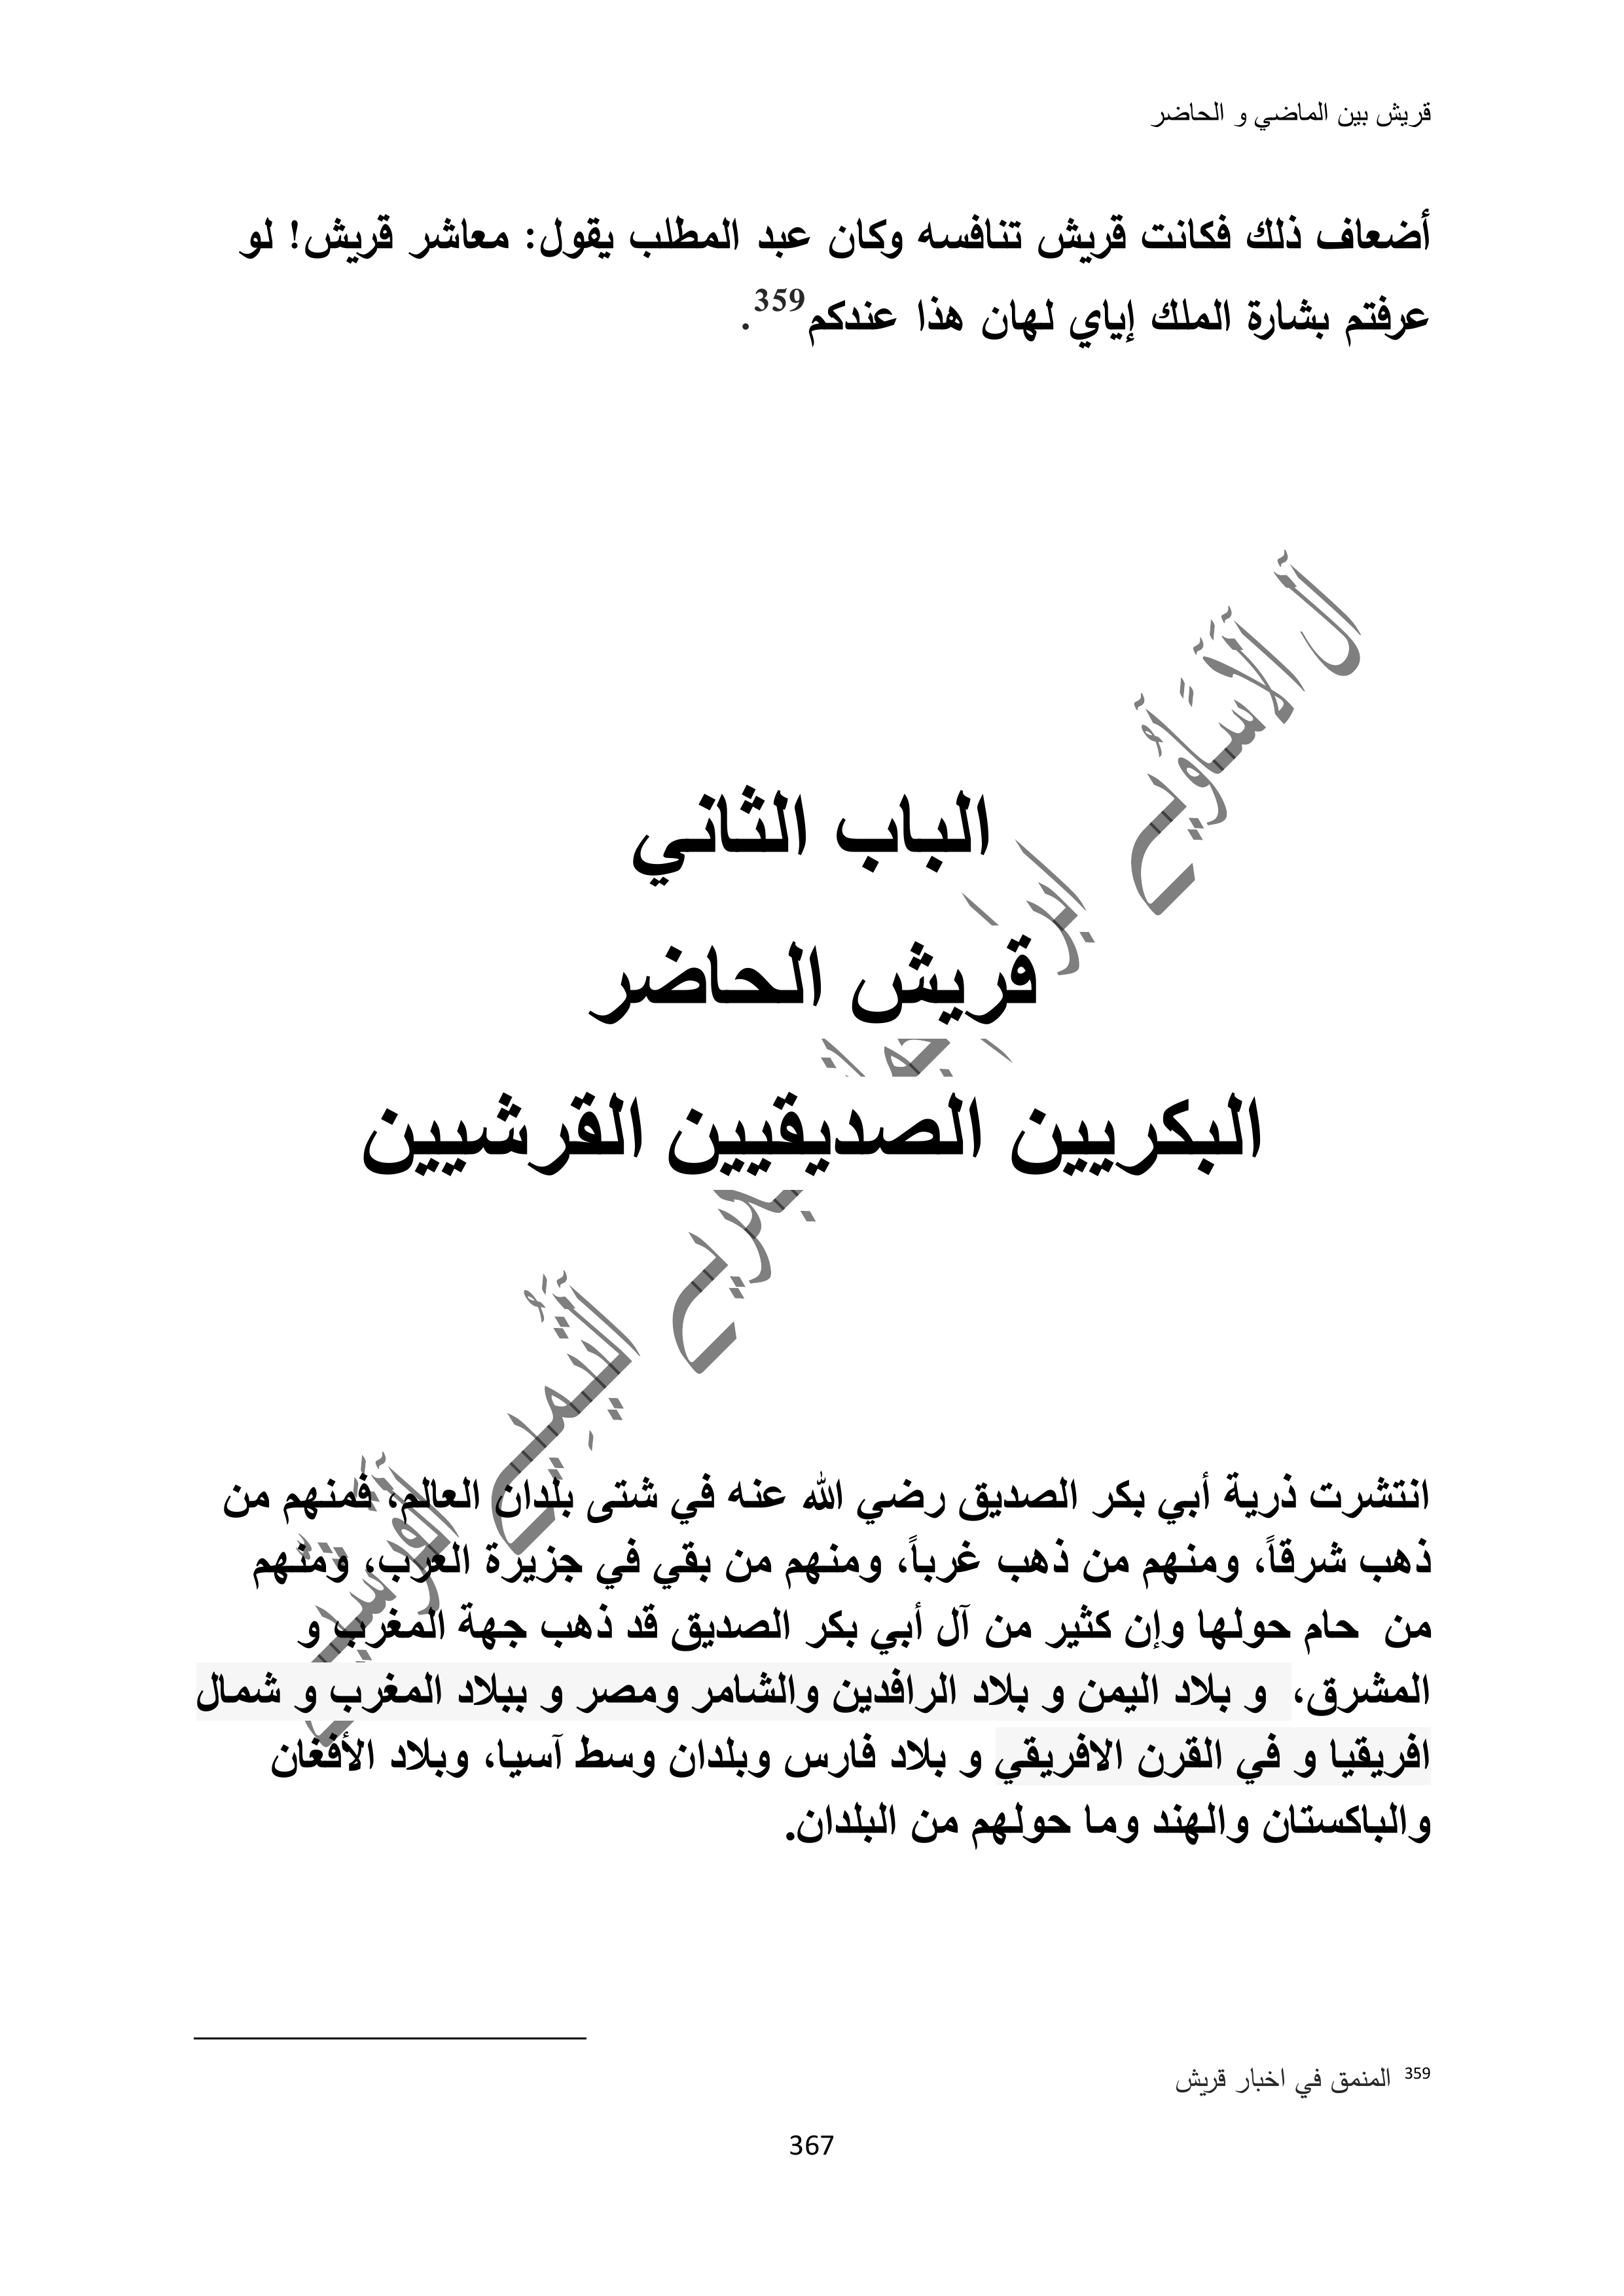 قريش بين الماضي و الحاضر
أضعاف ذلك فكانت قريش تنافسه وكان عبد المطلب يقول: معاشر قريش! لو
عرفتم بشارة الملك إياي لهان هذا عندكم359.
الباب الثاني
قريش الحاضر
البكريين الصديقيين القرشيين
انتشرت ذرية أبي بكر الصديق رضي الله عنه في شتى بلدان العالم، فمنهم من
ذهب شرقاً، ومنهم من ذهب غرباً، ومنهم من بقي في جزيرة العرب، ومنهم
من حام حولها وإن كثير من آل أبي بكر الصديق قد ذهب جهة المغرب و
المشرق، و بلاد اليمن و بلاد الرافدين والشامر ومصر و ببلاد المغرب و شمال
افريقيا و في القرن الافريقي و بلاد فارس وبلدان وسط آسيا، وبلاد الأفغان
والباكستان والهند وما حولهم من البلدان.
359 المنمق في اخبار قريش
367